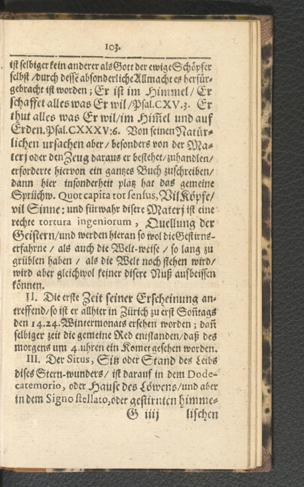 103.
ist selbiger kein anderer als Gott der ewige Schöpfer
selbst / durch desse absonderliche Allmacht es herfür-
gebracht ist worden; Er ist im Himmel / Er
schaffet alles was Er wil / Psal. CXV. 3. Er
thut alles was Er wil / im Him̃el und auf
Erden. Psal. CXXXV: 6. Von seinen Natür-
lichen ursachen aber / besonders von der Ma-
terj oder den Zeug daraus er bestehet / zuhandlen /
erforderte hiervon ein gantzes Buch zuschreiben /
dann hier insonderheit platz hat das gemeine
Sprüchw. Quot capita tot sensus, Vil Köpfe /
vil Sinne: und fürwahr disere Materj ist eine
rechte tortura ingeniorum, Quellung der
Geistern / und werden hieran so wol die Gestirns-
erfahrne / als auch die Welt-weise / so lang zu
grüblen haben / als die Welt noch stehen wird /
wird aber gleichwol keiner disere Nuß aufbeissen
können.
II. Die erste Zeit seiner Erscheinung an-
treffend / so ist er allhier in Zürich zu erst Soñtags
den 14.24. Wintermonats ersehen worden; dañ
selbiger zeit die gemeine Red entstanden / daß des
morgens um 4. uhren ein Komet gesehen worden.
III. Der Situs, Sitz oder Stand des Leibs
dises Stern-wunders / ist darauf in dem Dode-
catemorio, oder Hause des Löwens / und aber
in dem Signo stellato, oder gestirnten himme-
G iiij lischen